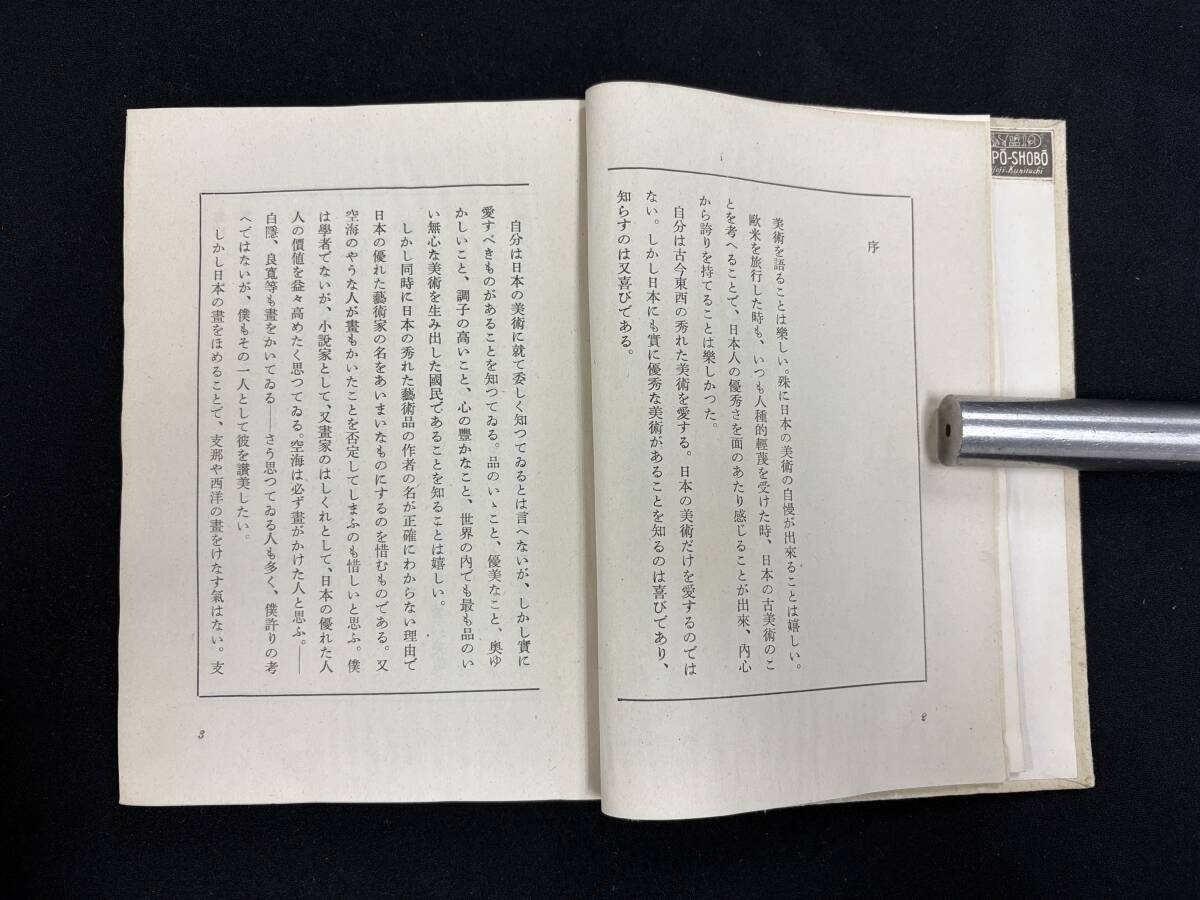 序
美術を語ることは樂しい。殊に日本の美術の自慢が出來ることは嬉しい。
歐米を旅行した時も、いつも人種的輕蔑を受けた時、日本の古美術のこ
とを考へることで、日本人の優秀さを面のあたり感じることが出來、內心
から誇りを持てることは樂しかつた。
自分は古今東西の秀れた美術を愛する。日本の美術だけを愛するのでは
ない。しかし日本にも實に優秀な美術があることを知るのは喜びであり、
知らすのは又喜びである。
2
自分は日本の美術に就て委しく知つてゐるとは言へないが、しかし實に
愛すべきものがあることを知つてゐる。品のいゝこと、優美なこと、奧ゆ
かしいこと、調子の高いこと、心の豐かなこと、世界の內でも最も品のい
い無心な美術を生み出した國民であることを知ることは嬉しい。
しかし同時に日本の秀れた藝術品の作者の名が正確にわからない理由で
日本の優れた藝術家の名をあいまいなものにするのを惜むものである。又
空海のやうな人が畫もかいたことを否定してしまふのも惜しいと思ふ。僕
は學者でないが、小說家として、又畫家のはしくれとして、日本の優れた人
人の價値を益々高めたく思つてゐる。空海は必ず畫がかけた人と思ふ。——
白隱、良寬等も畫をかいてゐる——さう思つてゐる人も多く、僕許りの考
へではないが、僕もその一人として彼を讚美したい。
しかし日本の畫をほめることで、支那や西洋の畫をけなす氣はない。支
3
PŌ-SHOBŌ
joji.Kunitachi